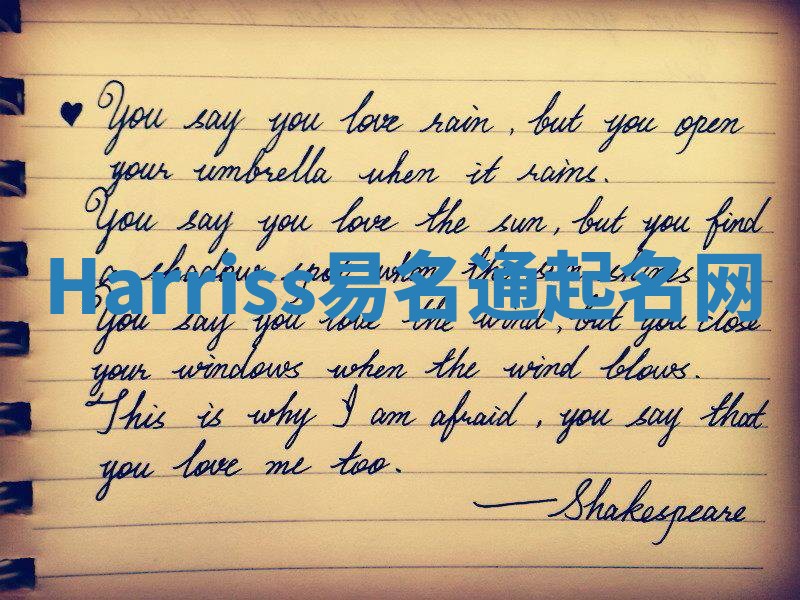 ♥ You say you love rain, but you open
your umbrella when it rains.
You say you love the sun, but you find
a shadow spot when the sun shines
Harriss易名通起名网
You say you love the wind, but you close
your windows when the wind blows.
This is why I am afraid, you say that
you love me too.
—Shakespeare